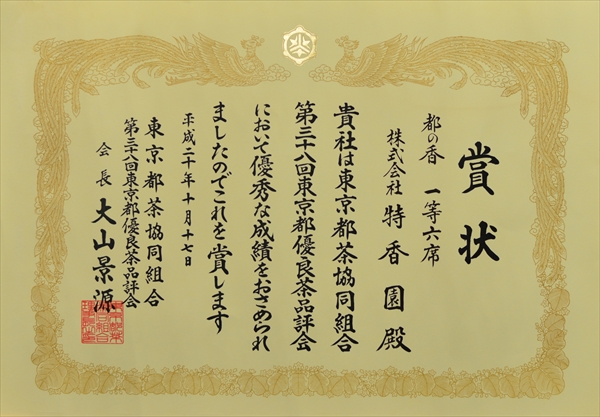 賞状
都の香 一等六席
株式会社 特香園殿
貴社は東京都茶協同組合
第三十八回東京都優良茶品評会
において優秀な成績をおさめられ
ましたのでこれを賞します
平成二十年十月十七日
東京都茶協同組合
第三十八回東京都優良茶品評会
会長 大山景源